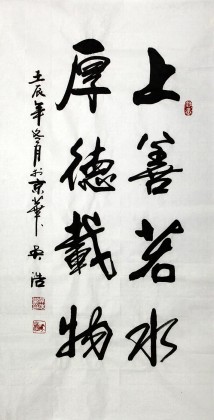 上善若水
厚德載物
壬辰年冬月於京華吳浩